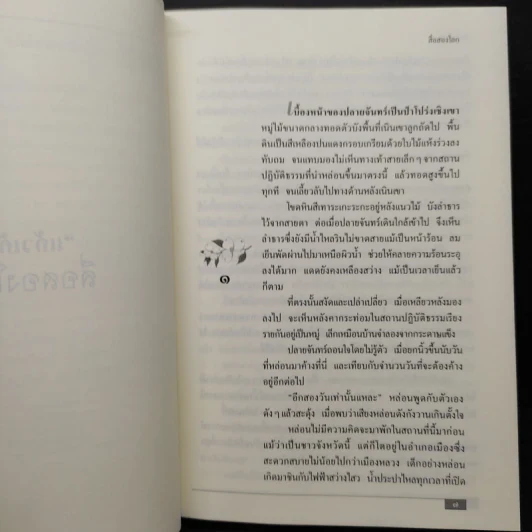 สื่อสองโลก
เบื้องหน้าของปลายจันทร์เป็นป่าโปร่งเชิงเขา
หมู่ไม้ขนาดกลางทอดตัวบังพื้นที่เนินเขาลูกถัดไป พื้น
ดินเป็นสีเหลืองปนแดงกรอบเกรียมด้วยใบไม้แห้งร่วงลง
ทับถม จนแทบมองไม่เห็นทางเท้าสายเล็กๆ จากสถาน
ปฏิบัติธรรมที่นำหล่อนขึ้นมาตรงนี้ แล้วทอดสูงขึ้นไป
ทุกที จนเลี้ยวลับไปทางด้านหลังเนินเขา
โขดหินสีเทาระเกะระกะอยู่หลังแนวไม้ บังลำธาร
ไว้จากสายตา ต่อเมื่อปลายจันทร์เดินใกล้เข้าไป จึงเห็น
ลำธารซึ่งยังมีน้ำไหลรินไม่ขาดสายแม้เป็นหน้าร้อน ลม
เย็นพัดผ่านไปมาเหนือผิวน้ำ ช่วยให้คลายความร้อนระอุ
ลงได้มาก แดดยังคงเหลืองสว่าง แม้เป็นเวลาเย็นแล้ว
ก็ตาม
๑
ที่ตรงนั้นสงัดและเปล่าเปลี่ยว เมื่อเหลียวหลังมอง
ลงไป จะเห็นหลังคากระท่อมในสถานปฏิบัติธรรมเรียง
รายกันอยู่เป็นหมู่ เล็กเหมือนบ้านจำลองจากกระดาษแข็ง
ปลายจันทร์ถอนใจโดยไม่รู้ตัว เมื่อยกนิ้วขึ้นนับวัน
ที่หล่อนมาค้างที่นี่ และเทียบกับจำนวนวันที่จะต้องค้าง
อยู่อีกต่อไป
“อีกสองวันเท่านั้นแหละ” หล่อนพูดกับตัวเอง
ดังๆ แล้วสะดุ้ง เมื่อพบว่าเสียงหล่อนดังกังวานเกินตั้งใจ
หล่อนไม่มีความคิดจะมาพักในสถานที่นี้มาก่อน
แม้ว่าเป็นชาวจังหวัดนี้ แต่ก็โตอยู่ในอำเภอเมืองซึ่ง
สะดวกสบายไม่น้อยไปกว่าเมืองหลวง เด็กอย่างหล่อน
เกิดมาชินกับไฟฟ้าสว่างไสว น้ำประปาไหลทุกเวลาที่เปิด